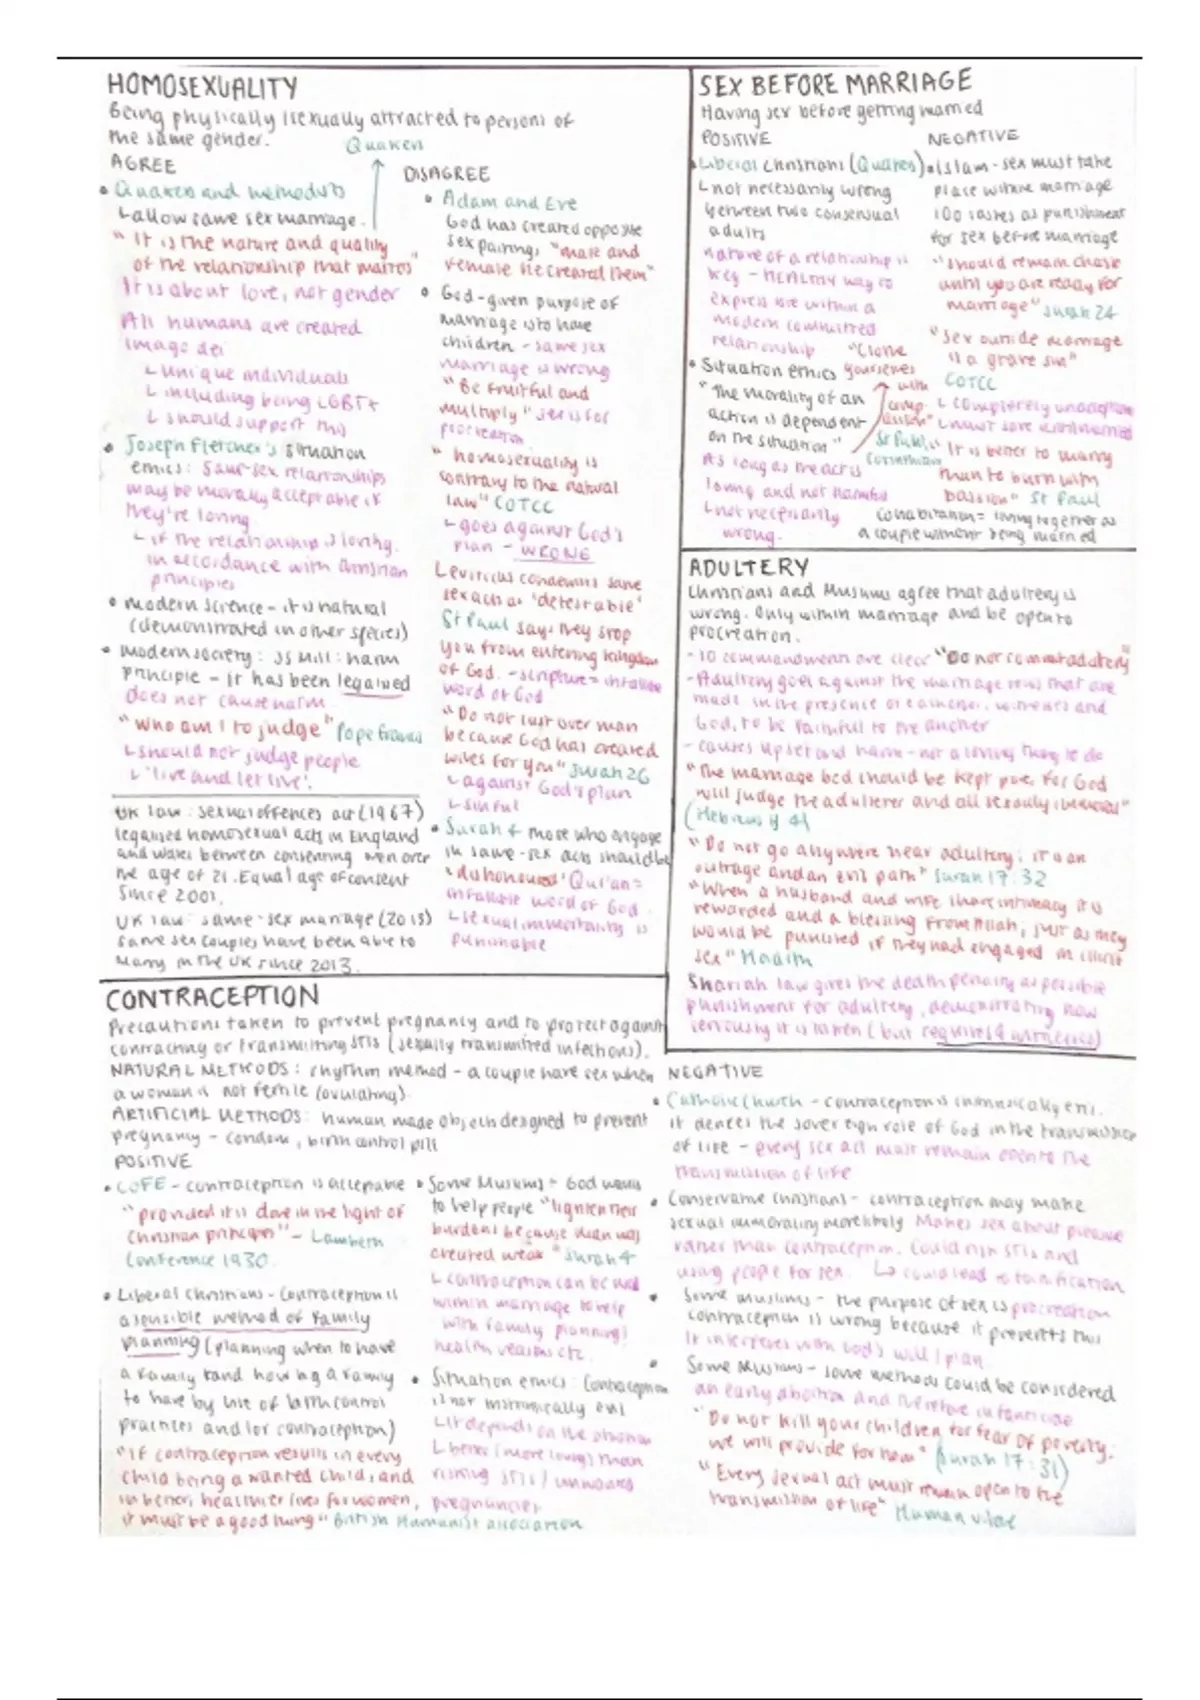 HOMOSEXUALITY
Being physically/sexually attracted to persons of
the same gender.
Quakers
AGREE
• Quakers and Methodists
↳ allow same sex marriage.
"It is the nature and quality
of the relationship that matters"
It is about love, not gender
All humans are created
imago dei
↳ unique individuals
↳ including being LGBT+
↳ should support this
• Joseph Fletcher's situation
ethics: same-sex relationships
may be morally acceptable if
they're loving
↳ if the relationship is loving.
in accordance with Christian
principles
• Modern science - it is natural
(demonstrated in other species)
• Modern society: JS Mill: harm
principle - it has been legalised
does not cause harm
"Who am I to judge" Pope Francis
↳ should not judge people
↳ 'live and let live'.
UK law: sexual offences act (1967)
legalised homosexual acts in England
and Wales between consenting men over
the age of 21. Equal age of consent
since 2001.
UK law: same-sex marriage (2013)
same sex couples have been able to
marry in the UK since 2013.
DISAGREE
• Adam and Eve
God has created opposite
sex pairing, "male and
female He created them"
• God-given purpose of
marriage is to have
children - same sex
marriage is wrong
"Be fruitful and
multiply" sex is for
procreation
"homosexuality is
contrary to the natural
law" COTCC
↳ goes against God's
plan - WRONG
Leviticus condemns same
sex acts as 'detestable'
St Paul says they stop
you from entering kingdom
of God. - scripture = infallible
word of God
"Do not lust over man
because God has created
wives for you" Surah 26
↳ against God's plan
↳ sinful
• Surah 4 those who engage
in same-sex acts should be
'dishonoured' Qur'an =
infallible word of God.
↳ sexual immorality is
punishable
SEX BEFORE MARRIAGE
Having sex before getting married
POSITIVE
• Liberal Christians (Quakers)
↳ not necessarily wrong
between two consensual
adults
nature of a relationship is
key - HEALTHY way to
express love within a
modern committed
relationship
• Situation ethics
"The morality of an
action is dependent
on the situation"
As long as the act is
loving and not harmful
↳ not necessarily
wrong.
"Clothe
yourselves
with
compassion"
St Paul,
Corinthians
NEGATIVE
• Islam - sex must take
place within marriage
100 lashes as punishment
for sex before marriage
"should remain chaste
until you are ready for
marriage" Surah 24
"Sex outside marriage
is a grave sin"
COTCC
↳ completely unacceptable
↳ must save until married
"It is better to marry
than to burn with
passion" St Paul
Cohabitation = living together as
a couple without being married
ADULTERY
Christians and Muslims agree that adultery is
wrong. Only within marriage and be open to
procreation.
- 10 commandments are clear "Do not commit adultery"
- Adultery goes against the marriage vows that are
made in the presence of each other, witnesses and
God, to be faithful to one another
- causes upset and harm - not a loving thing to do
"The marriage bed should be kept pure, for God
will judge the adulterer and all sexually immoral"
(Hebrews
"Do not go anywhere near adultery: it is an
outrage and an evil path" Surah 17:32
"When a husband and wife share intimacy it is
rewarded and a blessing from Allah; just as they
would be punished if they had engaged in illicit
sex" Hadith
Shariah law gives the death penalty as possible
punishment for adultery, demonstrating how
seriously it is taken (but requires 4 witnesses)
CONTRACEPTION
Precautions taken to prevent pregnancy and to protect against
contracting or transmitting STIs (sexually transmitted infections).
NATURAL METHODS: rhythm method - a couple have sex when
a woman is not fertile (ovulating)
ARTIFICIAL METHODS: human made objects designed to prevent
pregnancy - condom, birth control pill
POSITIVE
• COFE - contraception is acceptable
"provided it is done in the light of
Christian principles" - Lambeth
Conference 1930.
• Liberal Christians - Contraception is
a sensible method of family
planning (planning when to have
a family and how big a family
to have by use of birth control
practices and/or contraception)
"If contraception results in every
child being a wanted child, and
in better, healthier lives for women,
it must be a good thing" British Humanist Association
• Some Muslims - God wants
to help people "lighten their
burdens because man was
created weak" Surah 4
↳ contraception can be used
within marriage to help
with family planning,
health reasons etc.
• Situation ethics: Contraception
is not intrinsically evil
↳ it depends on the situation
↳ better (more loving) than
risking STIs / unwanted
pregnancies
NEGATIVE
• Catholic Church - contraception is intrinsically evil.
it denies the sovereign role of God in the transmission
of life - every sex act must remain open to the
transmission of life
• Conservative Christians - contraception may make
sexual immorality more likely Makes sex about pleasure
rather than contraception. Could risk STIs and
using people for sex. ↳ could lead to
• Some Muslims - the purpose of sex is procreation
contraception is wrong because it prevents this
It interferes with God's will / plan
• Some Muslims - some methods could be considered
an early abortion and therefore infanticide
"Do not kill your children for fear of poverty:
we will provide for them" (Surah 17:31)
"Every sexual act must remain open to the
transmission of life" Human vitae